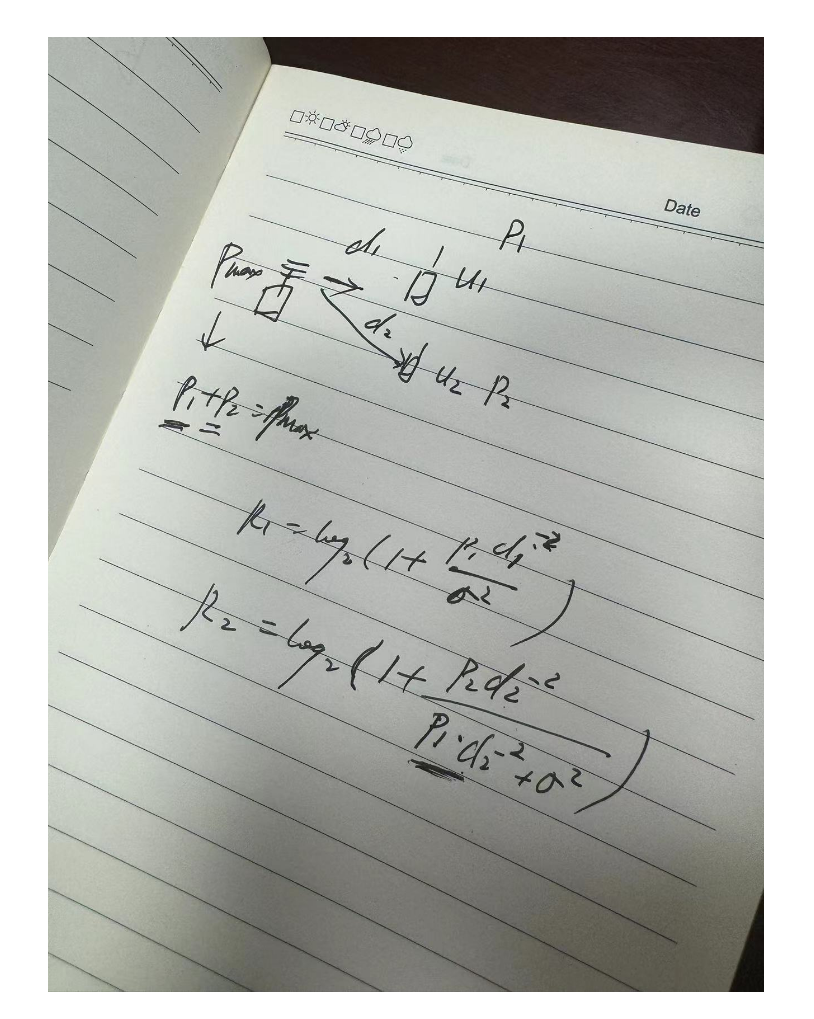 Date
P₁
d₁
Pmax u₁
d₂
u₂ P₂
P₁+P₂=Pmax
R₁ = log₂(1 + P₁d₁⁻²/σ²)
R₂ = log₂(1 + P₂d₂⁻²/(P₁·d₂⁻²+σ²))